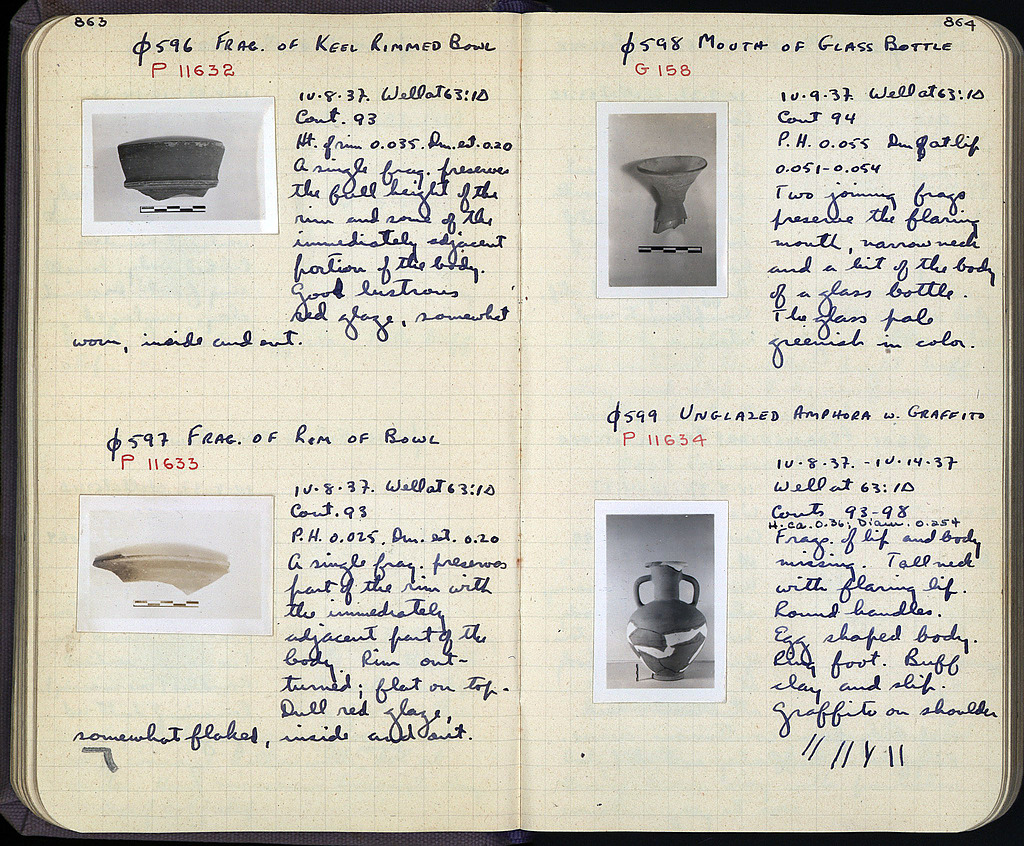 863
φ596 FRAG. OF KEEL RIMMED BOWL
P 11632
IV.8.37. Well at 63:ΙΔ
Cont. 93
Ht. of rim 0.035. Dm. est. 0.20
A single frag. preserves
the full height of the
rim and some of the
immediately adjacent
portion of the body.
Good lustrous
red glaze, somewhat
worn, inside and out.
φ597 FRAG. OF RIM OF BOWL
P 11633
IV.8.37. Well at 63:ΙΔ
Cont. 93
P.H. 0.025. Dm. est. 0.20
A single frag. preserves
part of the rim with
the immediately
adjacent part of the
body. Rim out-
turned; flat on top.
Dull red glaze,
somewhat flaked, inside and out.
864
φ598 MOUTH OF GLASS BOTTLE
G 158
IV.9.37. Well at 63:ΙΔ
Cont 94
P.H. 0.055 Dm of at lip
0.051-0.054
Two joining frags
preserve the flaring
mouth, narrow neck
and a bit of the body
of a glass bottle.
The glass pale
greenish in color.
φ599 UNGLAZED AMPHORA W. GRAFFITO
P 11634
IV.8.37. - IV.14.37
Well at 63:ΙΔ
Conts 93-98
H. ca. 0.36; Diam. 0.254
Frags. of lip and body
missing. Tall neck
with flaring lip.
Round handles.
Egg shaped body.
Ring foot. Buff
clay and slip.
Graffito on shoulder
// // Y ||